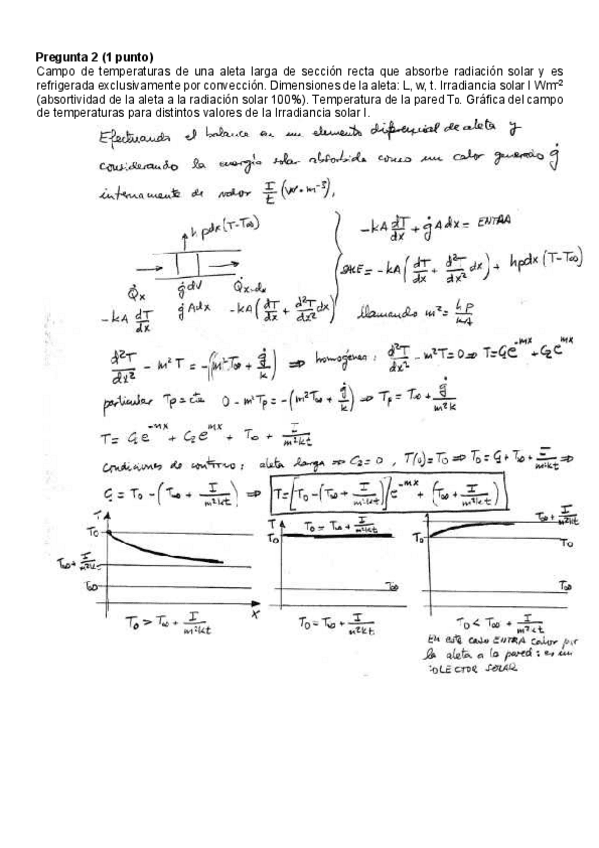 Pregunta 2 (1 punto)
Campo de temperaturas de una aleta larga de sección recta que absorbe radiación solar y es
refrigerada exclusivamente por convección. Dimensiones de la aleta: L, w, t. Irradiancia solar I Wm⁻²
(absortividad de la aleta a la radiación solar 100%). Temperatura de la pared T₀. Gráfica del campo
de temperaturas para distintos valores de la Irradiancia solar I.
Efectuando el balance en un elemento diferencial de aleta y
considerando la energía solar absorbida como un calor generado ġ
internamente de valor I/t (W·m⁻³),
h pdx(T-T∞)
-kA dT/dx + ġAdx = ENTRA
Q̇x ġdV Q̇x+dx
SALE = -kA(dT/dx + d²T/dx² dx) + hpdx(T-T∞)
-kA dT/dx ġAdx -kA(dT/dx + d²T/dx² dx)
llamando m² = hp/kA
d²T/dx² - m²T = -(m²T∞ + ġ/k) ⇒ homogénea: d²T/dx² - m²T = 0 ⇒ T = C₁e^-mx + C₂e^mx
particular Tp = cte 0 - m²Tp = -(m²T∞ + ġ/k) ⇒ Tp = T∞ + ġ/m²k
T = C₁e^-mx + C₂e^mx + T∞ + I/m²kt
Condiciones de contorno: aleta larga ⇒ C₂ = 0, T(0) = T₀ ⇒ T₀ = C₁ + T∞ + I/m²kt ⇒
C₁ = T₀ - (T∞ + I/m²kt) ⇒ T = [T₀ - (T∞ + I/m²kt)]e^-mx + (T∞ + I/m²kt)
T T₀ T∞ + I/m²k T∞ X
T T₀ T₀ = T∞ + I/m²kt T∞
T₀ T∞ + I/m²kt T₀ T∞
T₀ > T∞ + I/m²kt
T₀ = T∞ + I/m²kt
T₀ < T∞ + I/m²kt
EN ESTE CASO ENTRA calor por
la aleta a la pared: es un
COLECTOR SOLAR